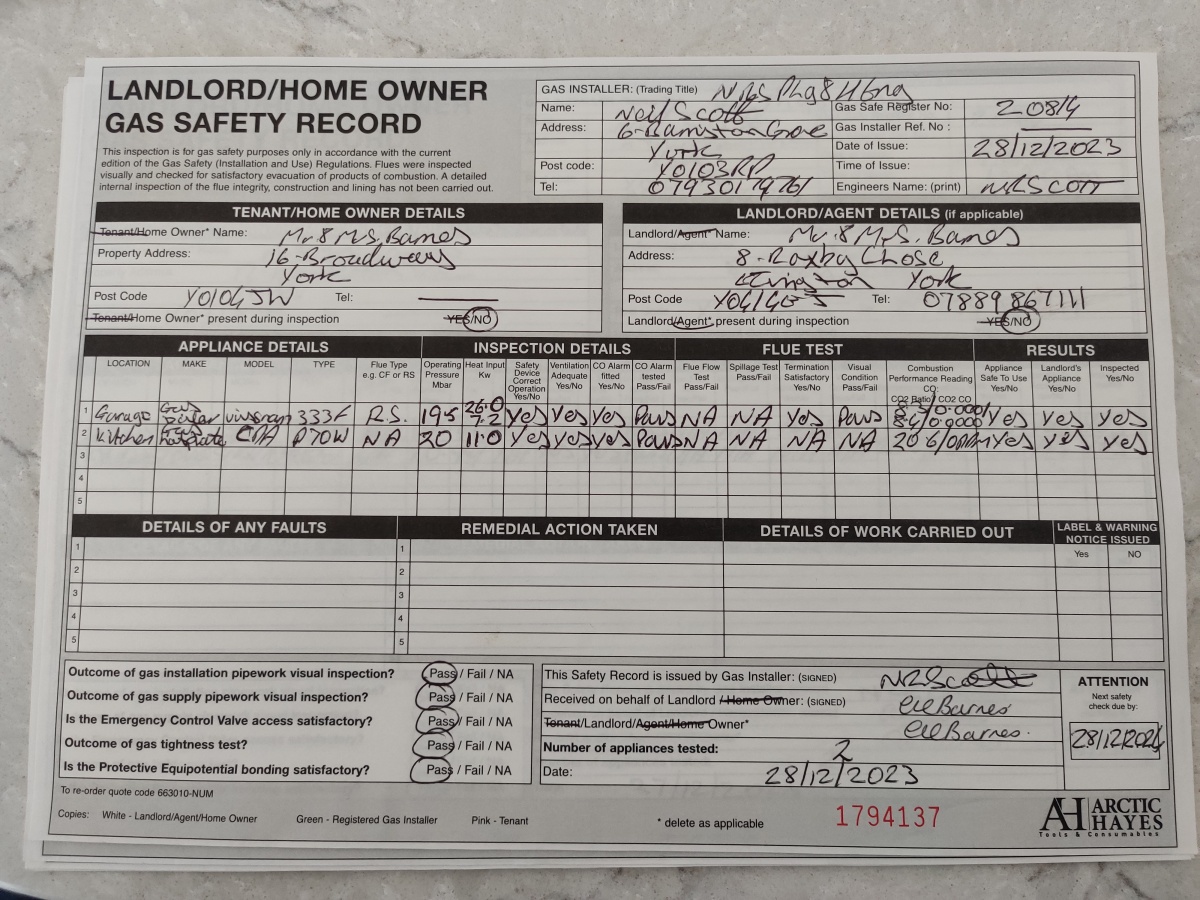 LANDLORD/HOME OWNER
GAS SAFETY RECORD
This inspection is for gas safety purposes only in accordance with the current
edition of the Gas Safety (Installation and Use) Regulations. Flues were inspected
visually and checked for satisfactory evacuation of products of combustion. A detailed
internal inspection of the flue integrity, construction and lining has not been carried out.
GAS INSTALLER: (Trading Title) NRS Plg & H Eng
Name: Neil Scott
Gas Safe Register No: 20814
Address: 6-Bamiston Grove
Gas Installer Ref. No :
York
Date of Issue: 28/12/2023
Post code: YO103RP
Time of Issue:
Tel: 07930179761
Engineers Name: (print) NR SCOTT
TENANT/HOME OWNER DETAILS
Tenant/Home Owner* Name: Mr & Mrs. Barnes
Property Address: 16-Broadway
York
Post Code YO104JW Tel:
Tenant/Home Owner* present during inspection YES/NO
LANDLORD/AGENT DETAILS (if applicable)
Landlord/Agent* Name: Mr & Mrs. Barnes
Address: 8-Roxby Close
York
Post Code Tel: 07889 867111
Landlord/Agent* present during inspection YES/NO
APPLIANCE DETAILS INSPECTION DETAILS FLUE TEST RESULTS
LOCATION MAKE MODEL TYPE Flue Type e.g. CF or RS Operating Pressure Mbar Heat Input Kw Safety Device Correct Operation Yes/No Ventilation Adequate Yes/No CO Alarm fitted Yes/No CO Alarm tested Pass/Fail Flue Flow Test Pass/Fail Spillage Test Pass/Fail Termination Satisfactory Yes/No Visual Condition Pass/Fail Combustion Performance Reading CO: CO2 Ratio/ CO2 CO Appliance Safe To Use Yes/No Landlord's Appliance Yes/No Inspected Yes/No
1 Garage Gas 333F R.S. 195 26.0 7.2 Yes Yes Yes Pass NA NA Yes Pass Yes Yes Yes
2 Kitchen CDA P70W NA 20 11.0 Yes Yes Yes Pass NA NA NA NA Yes Yes Yes
3
4
5
DETAILS OF ANY FAULTS REMEDIAL ACTION TAKEN DETAILS OF WORK CARRIED OUT LABEL & WARNING NOTICE ISSUED
Yes NO
1 1
2 2
3 3
4 4
5 5
Outcome of gas installation pipework visual inspection? Pass / Fail / NA
Outcome of gas supply pipework visual inspection? Pass / Fail / NA
Is the Emergency Control Valve access satisfactory? Pass / Fail / NA
Outcome of gas tightness test? Pass / Fail / NA
Is the Protective Equipotential bonding satisfactory? Pass / Fail / NA
This Safety Record is issued by Gas Installer: (SIGNED) NR Scott
Received on behalf of Landlord / Home Owner: (SIGNED) Barnes
Tenant/Landlord/Agent/Home Owner* Barnes.
Number of appliances tested: 2
Date: 28/12/2023
ATTENTION
Next safety
check due by:
28/12/2024
To re-order quote code 663010-NUM
Copies: White - Landlord/Agent/Home Owner Green - Registered Gas Installer Pink - Tenant
* delete as applicable
1794137
AH ARCTIC HAYES
Tools & Consumables